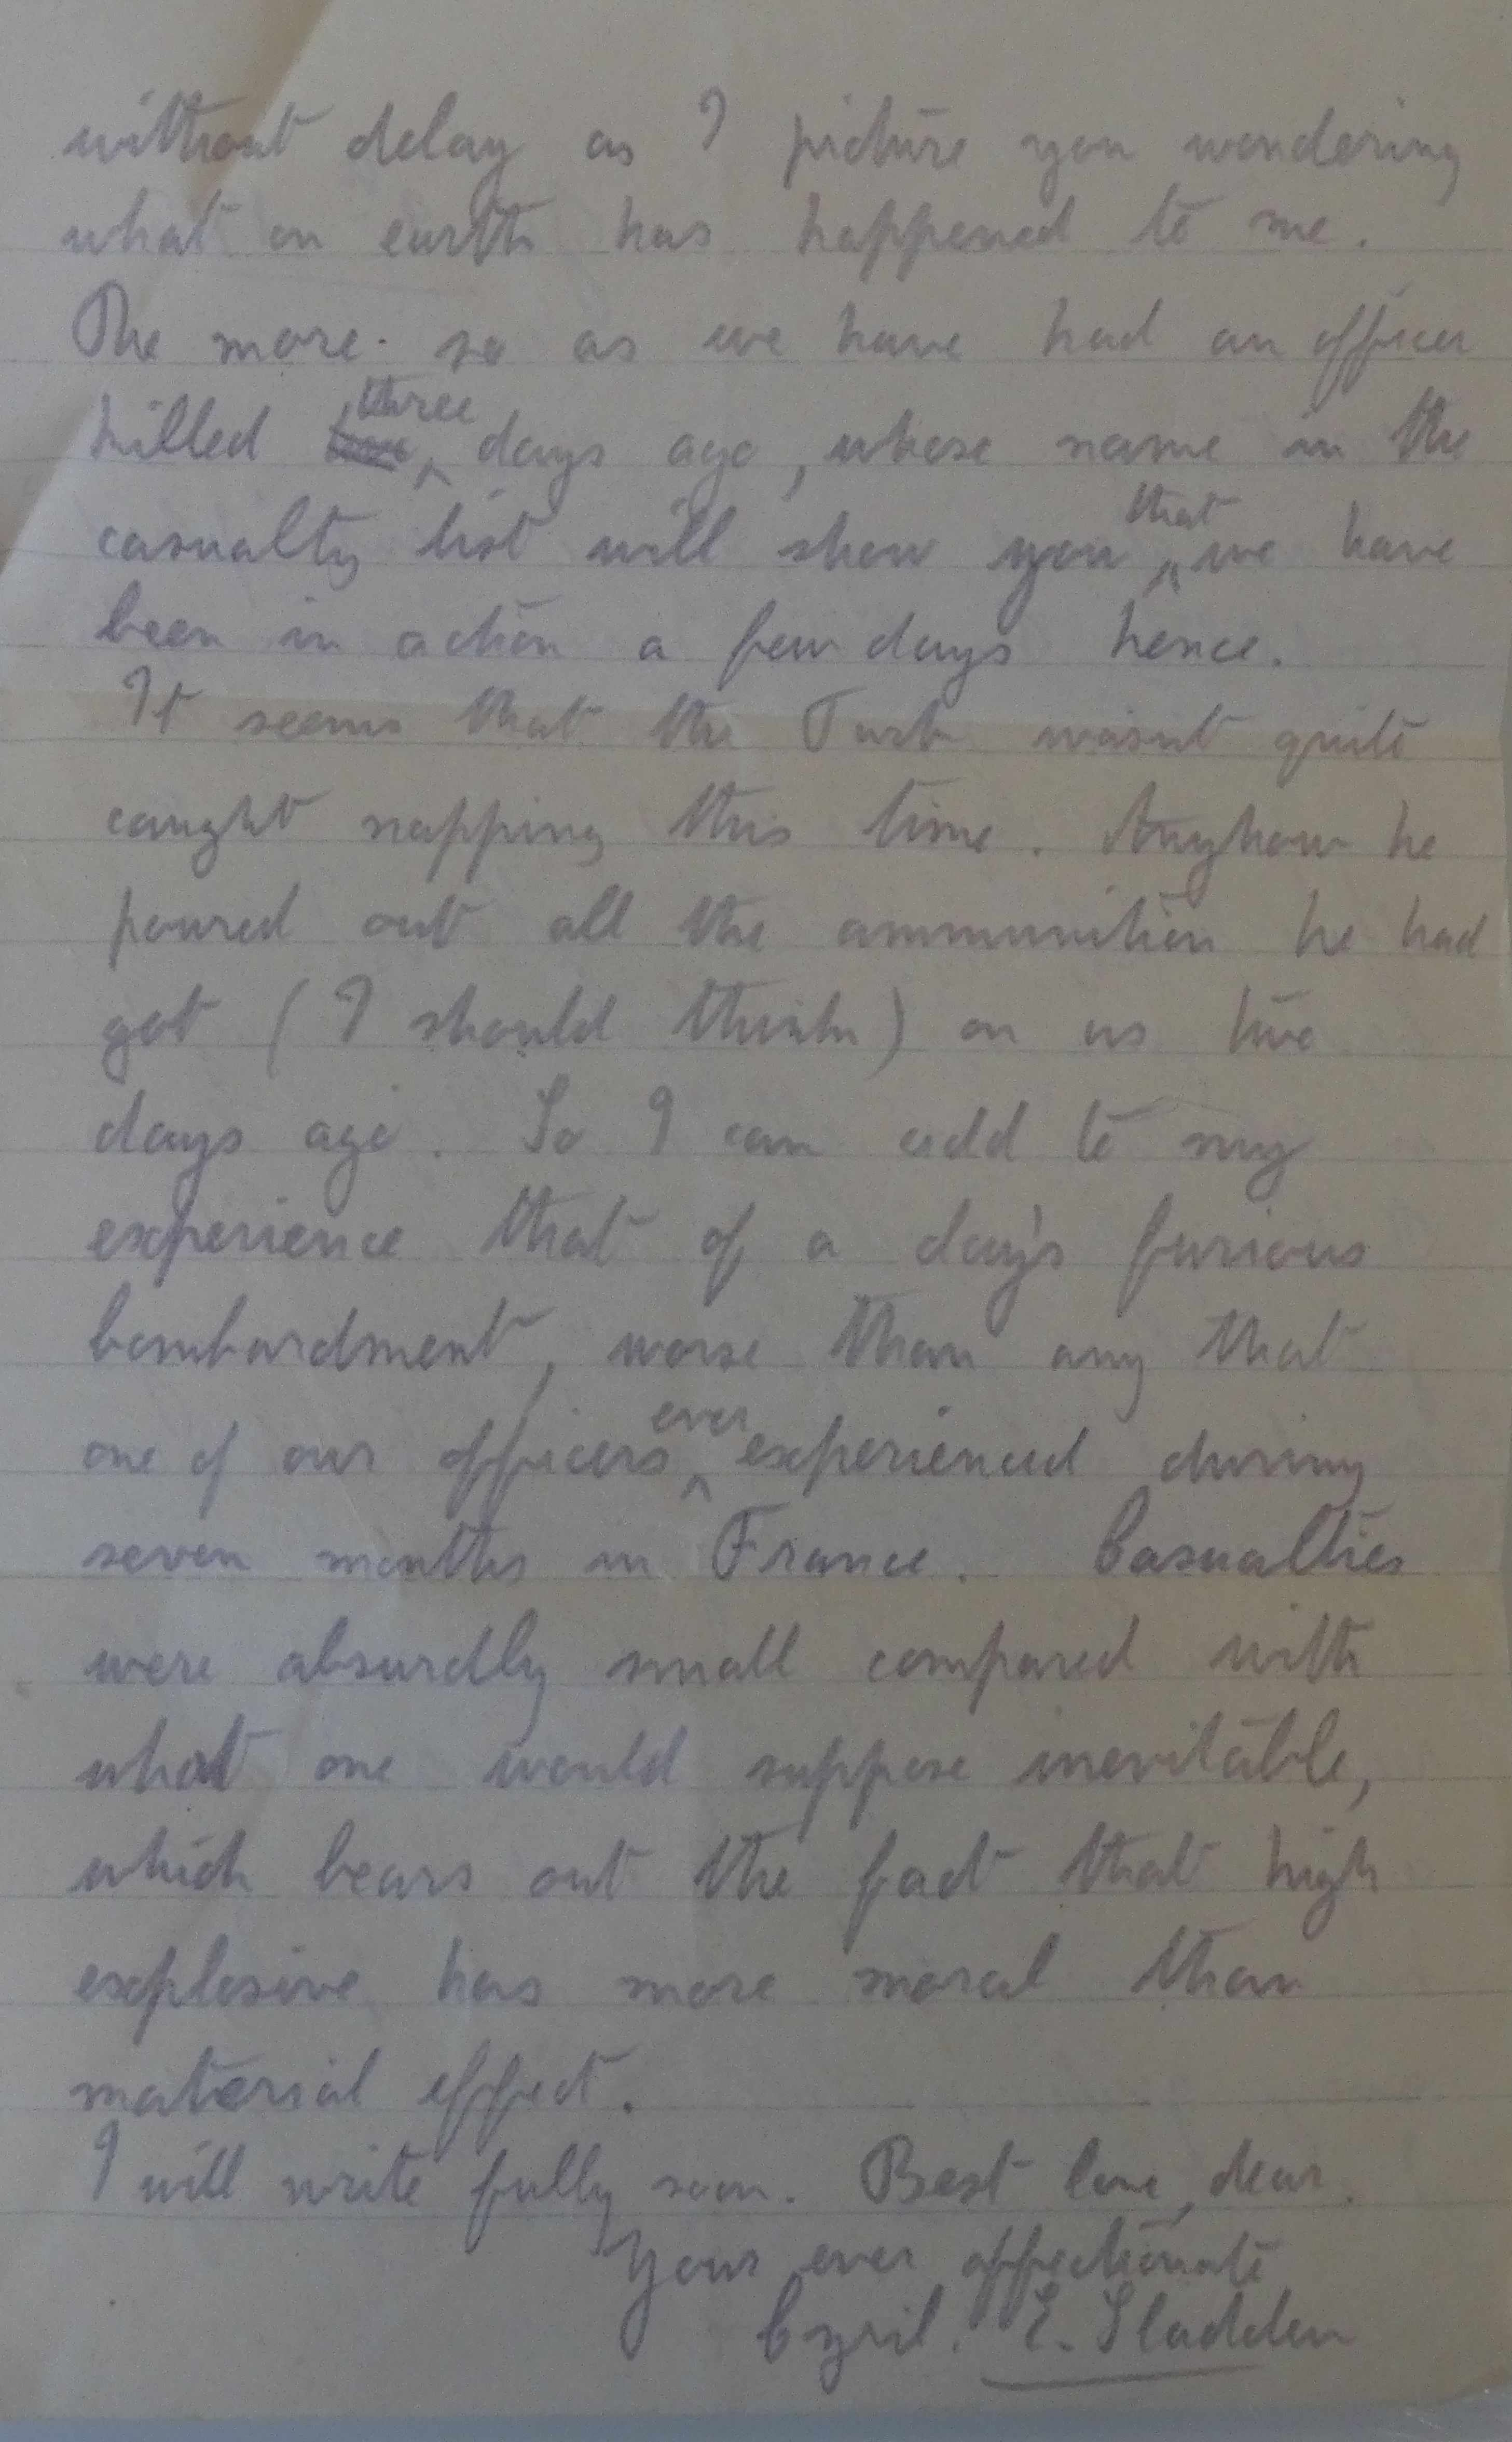 without delay as I picture you wondering
what on earth has happened to me.
The more so as we have had an officer
killed three days ago, whose name in the
casualty list will show you that we have
been in action a few days hence.
It seems that the Turk wasnt quite
caught napping this time. Anyhow he
poured out all the ammunition he had
got (I should think) on us two
days ago. So I can add to my
experience that of a day's furious
bombardment, worse than any that
one of our officers ever experienced during
seven months in France. Casualties
were absurdly small compared with
what one would suppose inevitable,
which bears out the fact that high
explosive has more moral than
material effect.
I will write fully soon. Best love, dear.
Your ever affectionate
Cyril. E. Sladden